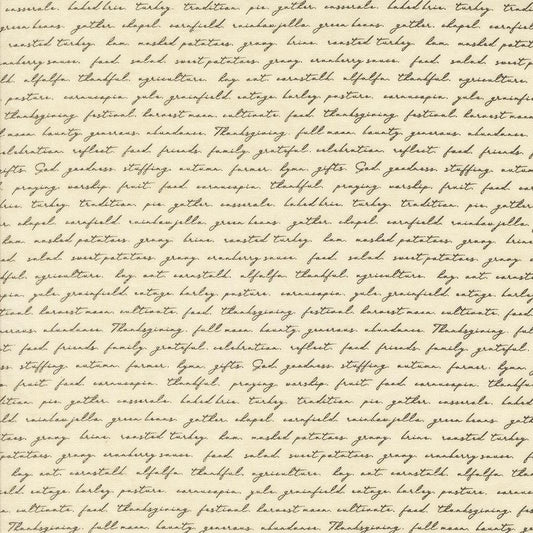 casserole. baked brie. turkey. tradition. pie. gather. casserole. baked brie. turkey. tradi
green beans. gather. chapel. cornfield. rainbow jello. green beans. gather. chapel. cornfiel
roasted turkey. ham. mashed potatoes. gravy. brine. roasted turkey. ham. mashed potat
cranberry sauce. food. salad. sweet potatoes. gravy. cranberry sauce. food. salad. sweet p
lk. alfalfa. thankful. agriculture. hay. oat. cornstalk. alfalfa. thankful. agriculture.
pasture. cornucopia. yule. grainfield. cottage. barley. pasture. cornucopia. yule. grainfie
thanksgiving. festival. harvest moon. cultivate. food. thanksgiving. festival. harvest moon
l moon. bounty. generous. abundance. Thanksgiving. full moon. bounty. generous. abundance.
celebration. reflect. food. friends. family. grateful. celebration. reflect. food. friends.
gifts. God. goodness. stuffing. autumn. farmer. hymn. gifts. God. goodness. stuffing. autum
d. praying. worship. fruit. food. cornucopia. thankful. praying. worship. fruit. food. cor
brie. turkey. tradition. pie. gather. casserole. baked brie. turkey. tradition. pie. gather
r. chapel. cornfield. rainbow jello. green beans. gather. chapel. cornfield. rainbow jello.
ham. mashed potatoes. gravy. brine. roasted turkey. ham. mashed potatoes. gravy. brine
od. salad. sweet potatoes. gravy. cranberry sauce. food. salad. sweet potatoes. gravy
kful. agriculture. hay. oat. cornstalk. alfalfa. thankful. agriculture. hay. oat. cornst
pia. yule. grainfield. cottage. barley. pasture. cornucopia. yule. grainfield. cottage. barle
tival. harvest moon. cultivate. food. thanksgiving. festival. harvest moon. cultivate. foo
nerous. abundance. Thanksgiving. full moon. bounty. generous. abundance. Thanksgiving. ful
t. food. friends. family. grateful. celebration. reflect. food. friends. family. grateful.
ss. stuffing. autumn. farmer. hymn. gifts. God. goodness. stuffing. autumn. farmer. hymn.
p. fruit. food. cornucopia. thankful. praying. worship. fruit. food. cornucopia. thankfu
dition. pie. gather. casserole. baked brie. turkey. tradition. pie. gather. casserole. bake
ld. rainbow jello. green beans. gather. chapel. cornfield. rainbow jello. green beans. ga
toes. gravy. brine. roasted turkey. ham. mashed potatoes. gravy. brine. roasted turke
potatoes. gravy. cranberry sauce. food. salad. sweet potatoes. gravy. cranberry sauce. f
hay. oat. cornstalk. alfalfa. thankful. agriculture. hay. oat. cornstalk. alfalfa. tha
eld. cottage. barley. pasture. cornucopia. yule. grainfield. cottage. barley. pasture. cornuco
n. cultivate. food. thanksgiving. festival. harvest moon. cultivate. food. thanksgiving. fes
Thanksgiving. full moon. bounty. generous. abundance. Thanksgiving. full moon. bounty. ge